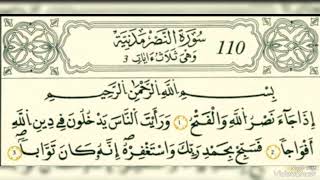 سُورَةُ النَّصْرِ مَدَنِيَّةٌ
110
وَهِيَ ثَلَاثُ آيَاتٍ 3
بِسْمِ اللَّهِ الرَّحْمَٰنِ الرَّحِيمِ
إِذَا جَاءَ نَصْرُ اللَّهِ وَالْفَتْحُ ١ وَرَأَيْتَ النَّاسَ يَدْخُلُونَ فِي دِينِ اللَّهِ
أَفْوَاجًا ٢ فَسَبِّحْ بِحَمْدِ رَبِّكَ وَاسْتَغْفِرْهُ إِنَّهُ كَانَ تَوَّابًا ٣